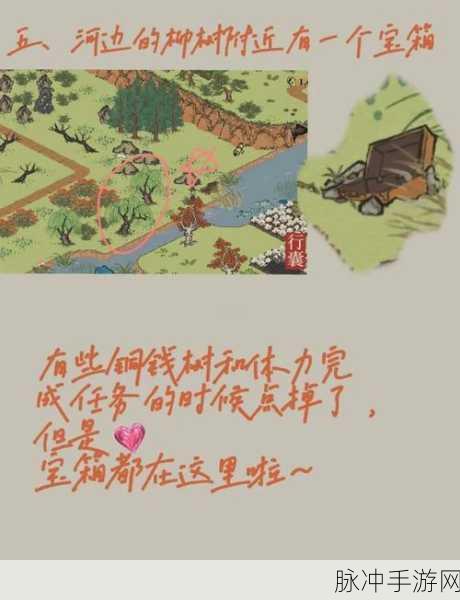 五、河边的柳树附近有一个宝箱
行囊
有些铜钱树和体力完
成任务的时候点掉了，
但是
宝箱都在这里啦~
脉冲手游网